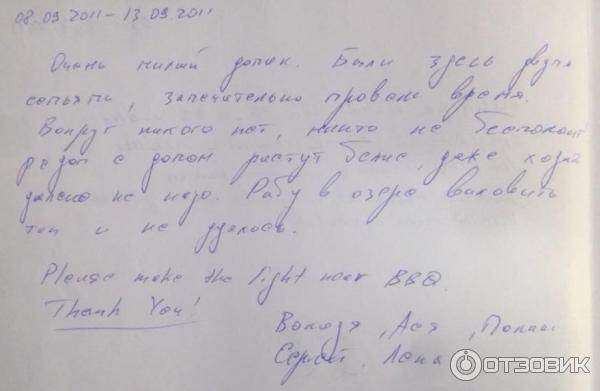 08.09.2011 – 13.09.2011
Очень милый домик. Были здесь двумя
семьями, замечательно провели время.
Вокруг никого нет, никто не беспокоит
рядом с домом растут белые, даже ходить
далеко не надо. Рыбу в озере выловить
так и не удалось.
Please make the light near BBQ.
Thank You!
Володя, Ася, Полина
Сергей, Лена
ОТЗОВИК